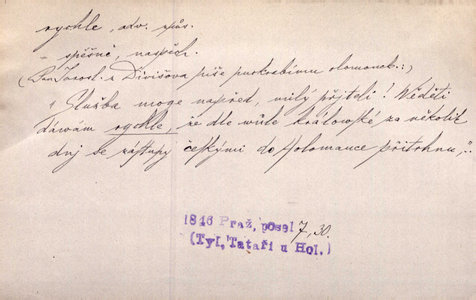 rychle, adv. způs.
– spěšně, naspěch.
(Jan Jarosl. z Divišova píše purkrabímu olomouck.:)
„Služba moje napřed, milý příteli! Věděti
dávám rychle, že dle vůle královské za několik
dnj se zástupy českými do Holomauce přitrhnu,“..
1846 Praž, posel 7, 30.
(Tyl, Tataři u Hol.)